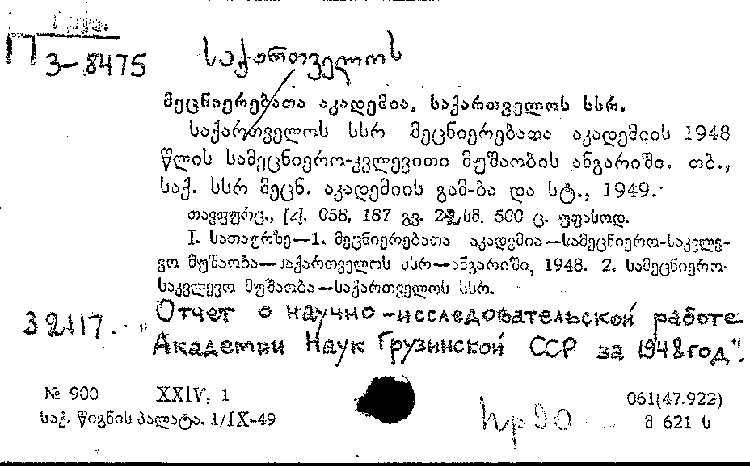 П 3-8475 საქართველოს
მეცნიერებათა აკადემია, საქართველოს სსრ.
საქართველოს სსრ მეცნიერებათა აკადემიის 1948
წლის სამეცნიერო-კვლევითი მუშაობის ანგარიში. თბ.,
საქ. სსრ მეცნ. აკადემიის გამ-ბა და სტ., 1949.
თავფურც., [2]. 058, 187 გვ. 22 სმ. 500 ც. უფასოდ.
I. სათაურზე—1. მეცნიერებათა აკადემია—სამეცნიერო-საკვლე-
ვო მუშაობა—საქართველოს სსრ—ანგარიში, 1948. 2. სამეცნიერო-
საკვლევო მუშაობა—საქართველოს სსრ.
32117. „Отчет о научно-исследовательской работе
Академии Наук Грузинской ССР за 1948 год".
№ 900 XXIV, 1 061(47.922)
საქ. წიგნის პალატა. 1/IX-49 მ 621 ს